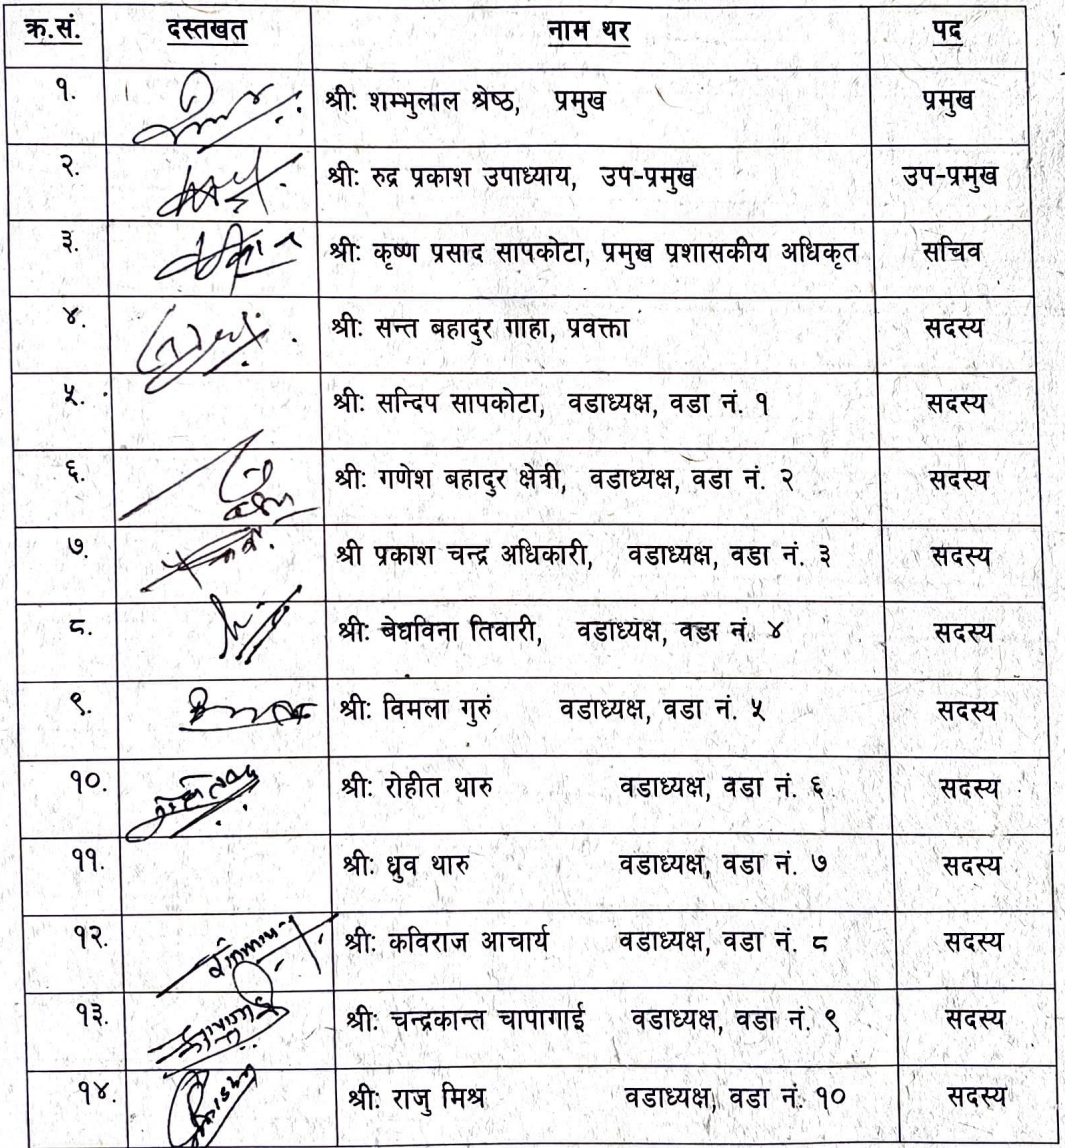 क्र.सं. दस्तखत नाम थर पद
१. श्री: शम्भुलाल श्रेष्ठ, प्रमुख प्रमुख
२. श्री: रुद्र प्रकाश उपाध्याय, उप-प्रमुख उप-प्रमुख
३. श्री: कृष्ण प्रसाद सापकोटा, प्रमुख प्रशासकीय अधिकृत सचिव
४. श्री: सन्त बहादुर गाहा, प्रवक्ता सदस्य
५. श्री: सन्दिप सापकोटा, वडाध्यक्ष, वडा नं. १ सदस्य
६. श्री: गणेश बहादुर क्षेत्री, वडाध्यक्ष, वडा नं. २ सदस्य
७. श्री प्रकाश चन्द्र अधिकारी, वडाध्यक्ष, वडा नं. ३ सदस्य
८. श्री: तिवारी, वडाध्यक्ष, वडा नं. ४ सदस्य
९. श्री: विमला गुरुं वडाध्यक्ष, वडा नं. ५ सदस्य
१०. श्री: रोहीत थारु वडाध्यक्ष, वडा नं. ६ सदस्य
११. श्री: ध्रुव थारु वडाध्यक्ष, वडा नं. ७ सदस्य
१२. श्री: कविराज आचार्य वडाध्यक्ष, वडा नं. ८ सदस्य
१३. श्री: चन्द्रकान्त चापागाई वडाध्यक्ष, वडा नं. ९ सदस्य
१४. श्री: राजु मिश्र वडाध्यक्ष, वडा नं. १० सदस्य